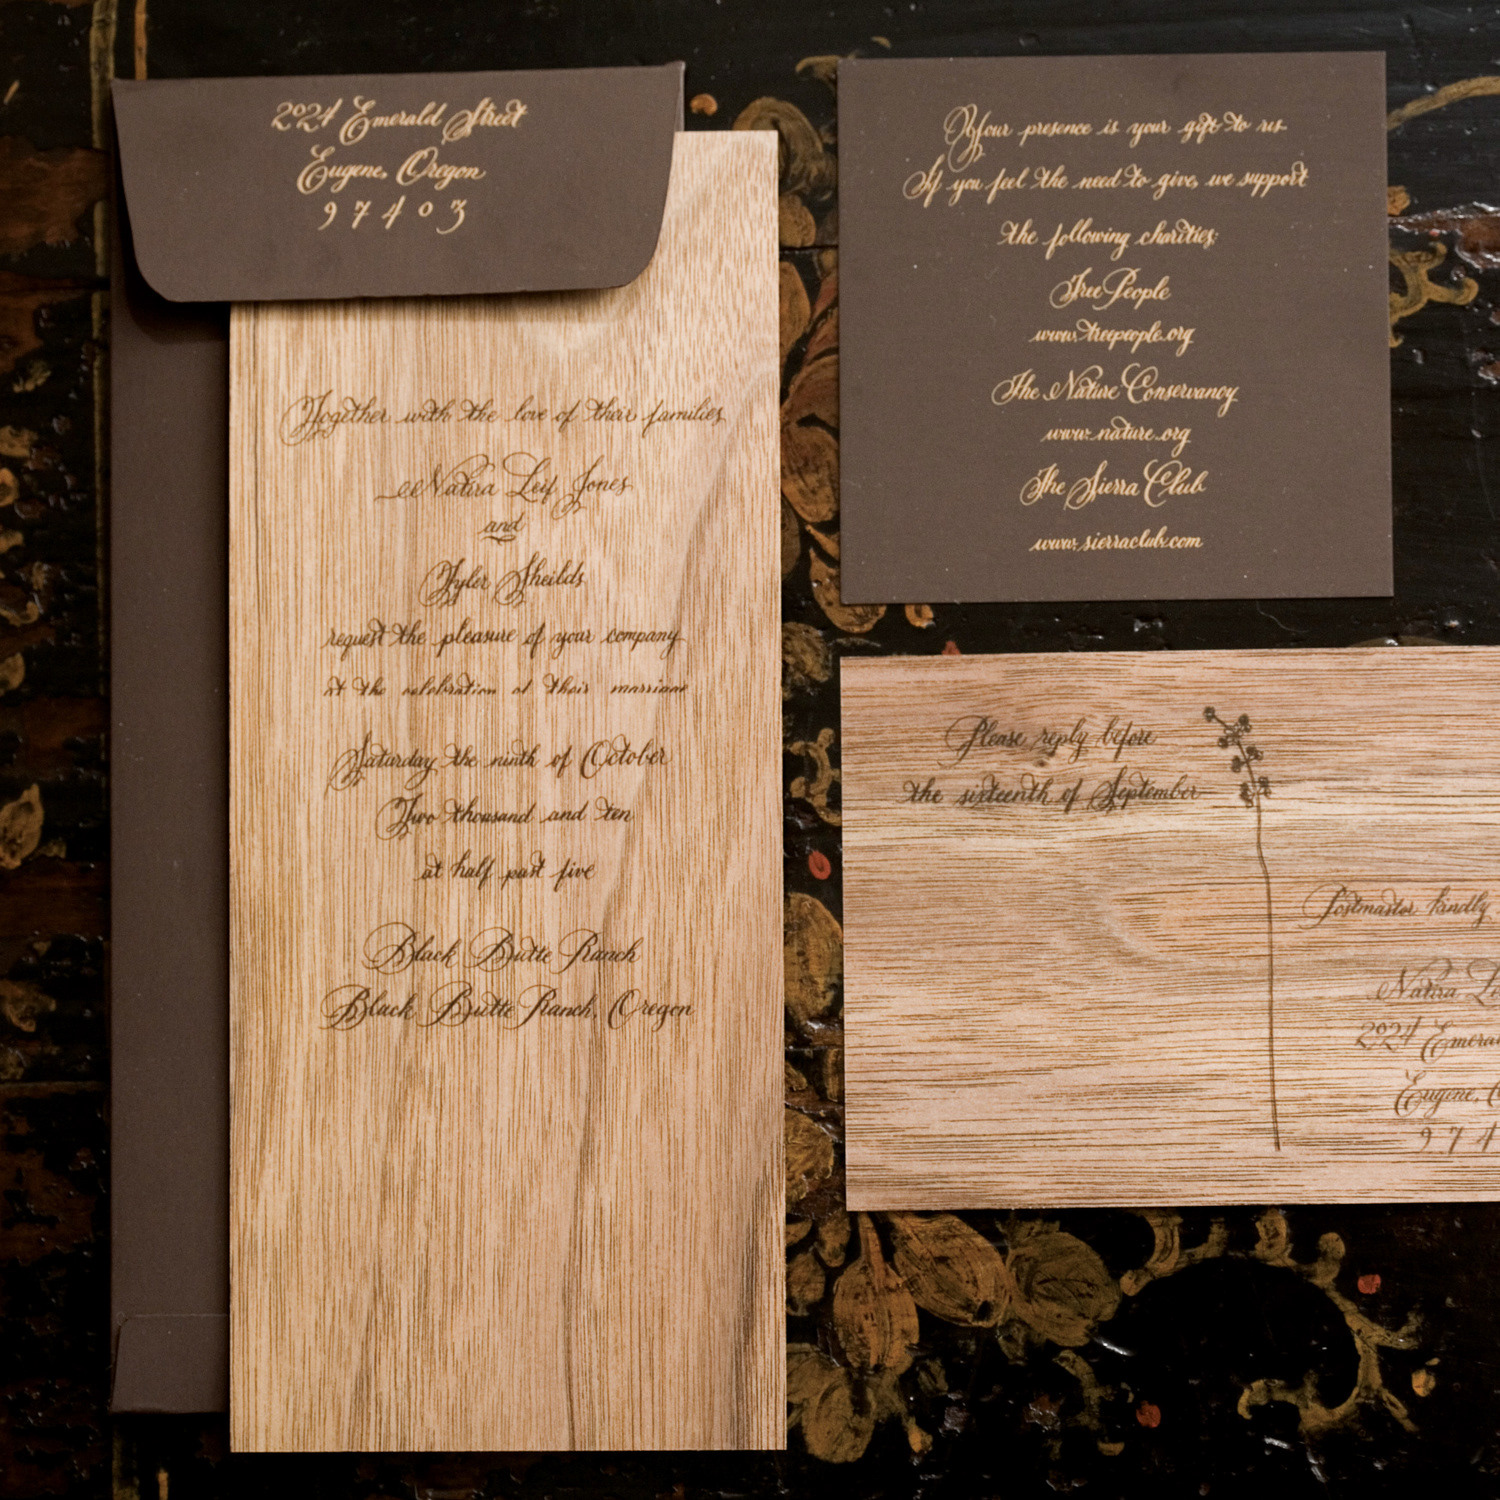 2024 Emerald Street
Eugene, Oregon
97403
Together with the love of their families
Natira Leif Jones
and
Tyler Sheilds
request the pleasure of your company
at the celebration of their marriage
Saturday the ninth of October
Two thousand and ten
at half past five
Black Butte Ranch
Black Butte Ranch, Oregon
Your presence is your gift to us.
If you feel the need to give, we support
the following charities:
Tree People
www.treepeople.org
The Nature Conservancy
www.nature.org
The Sierra Club
www.sierraclub.com
Please reply before
the sixteenth of September
Postmaster kindly
Natira
2024
Eugene,